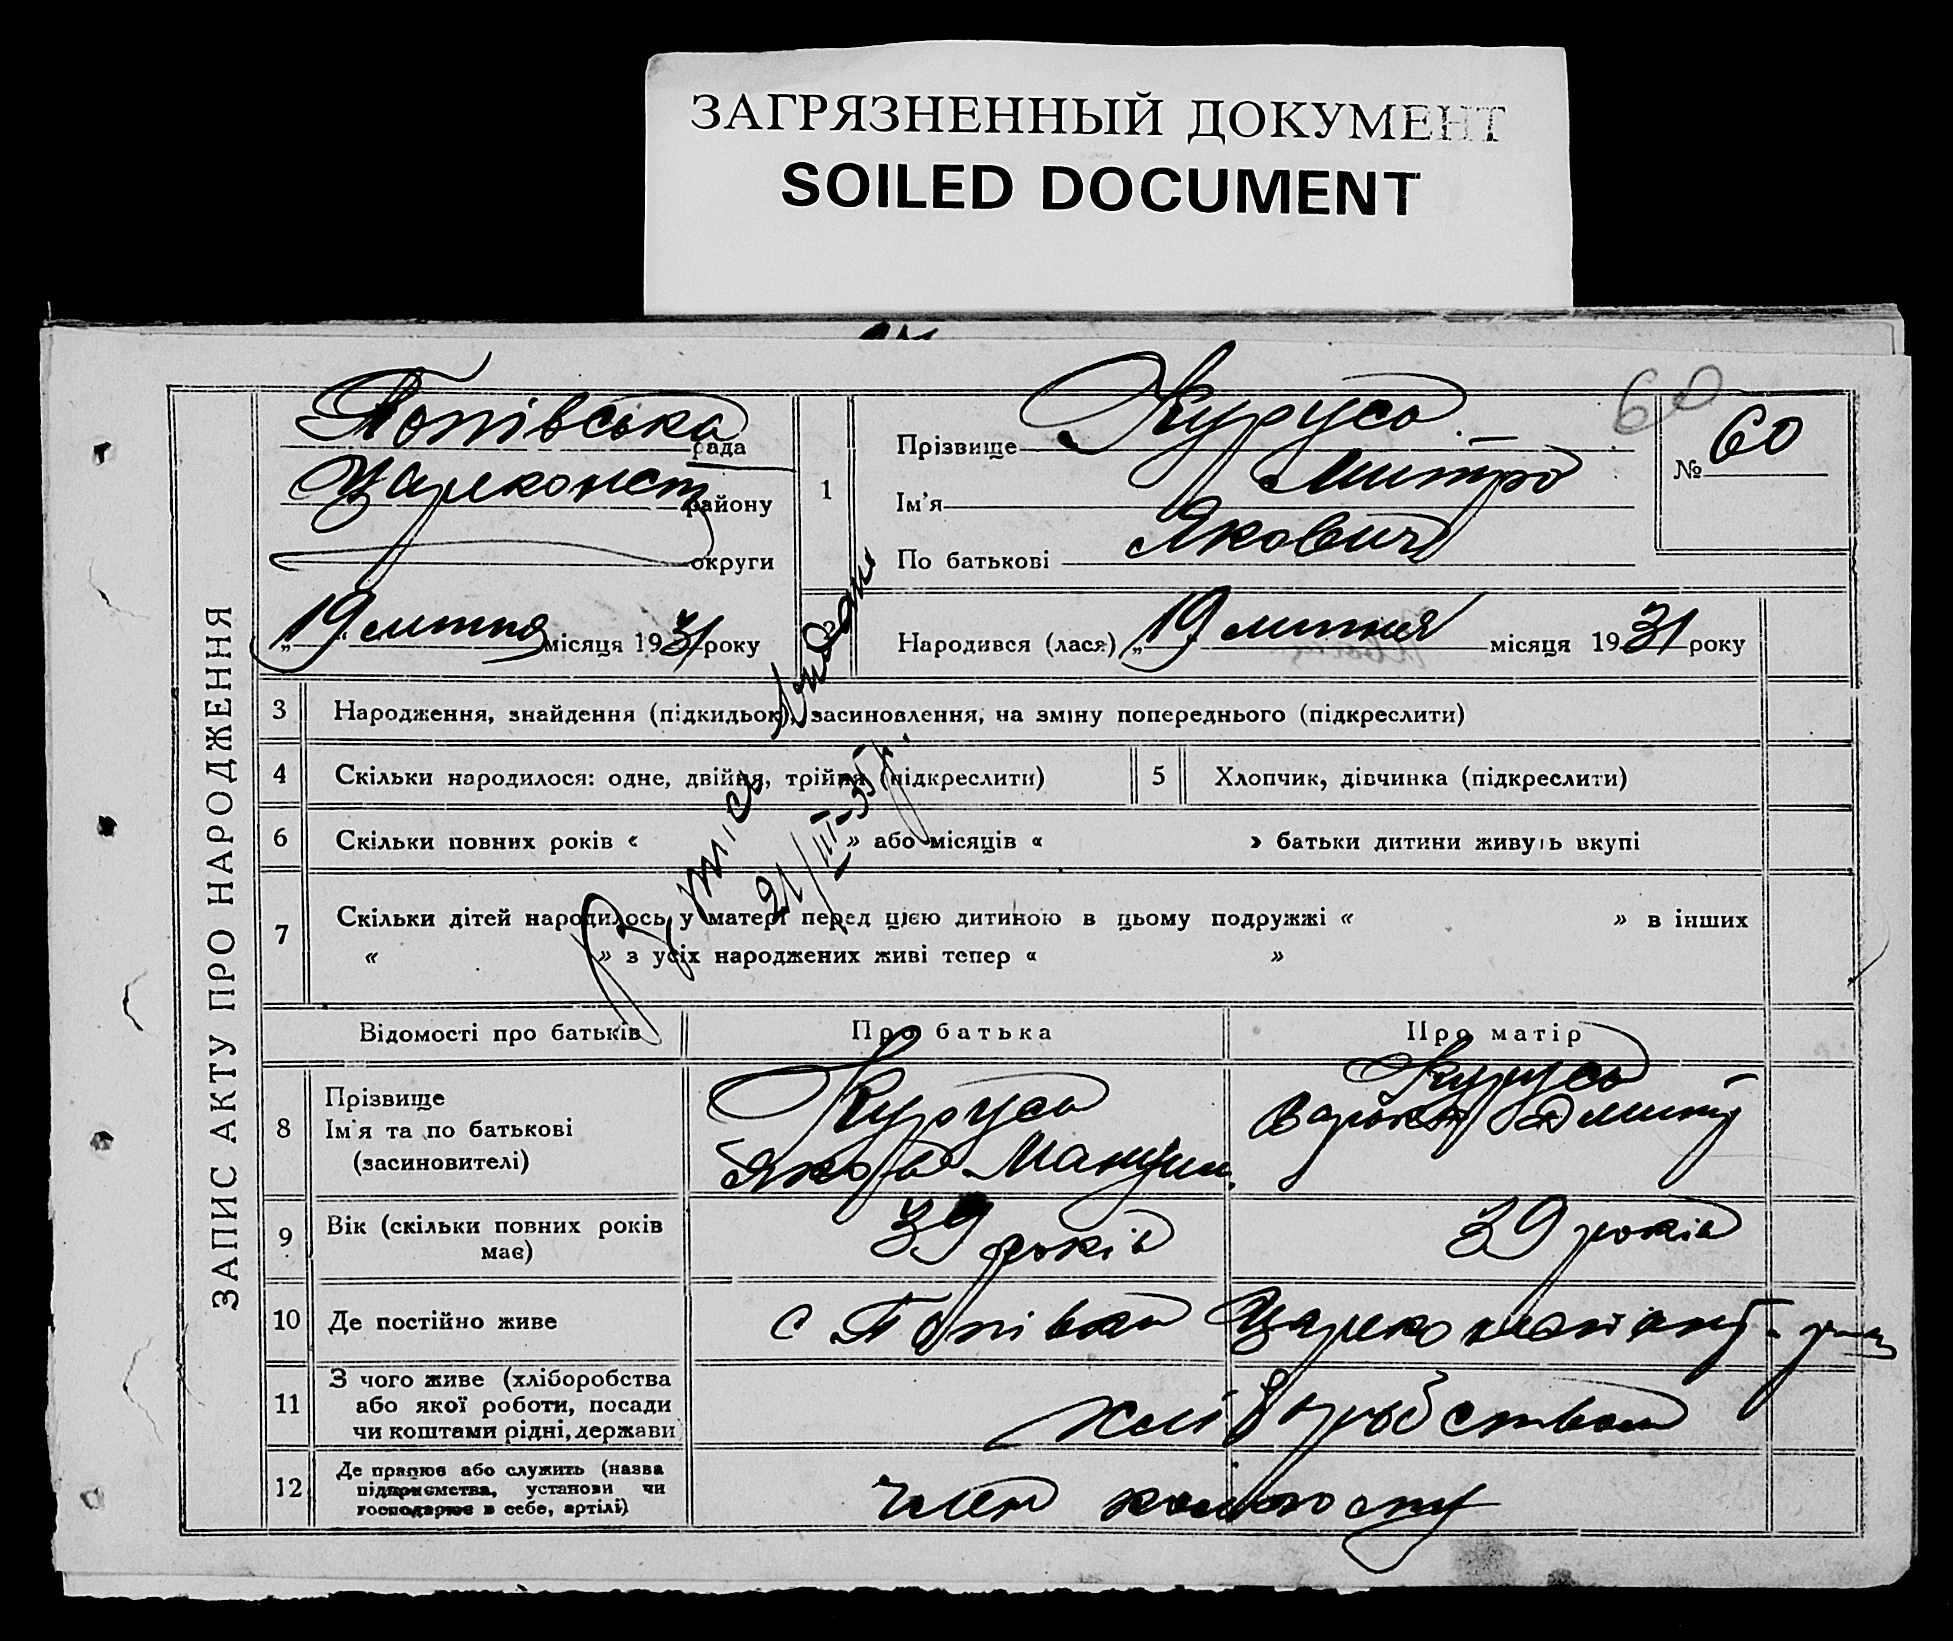 ЗАГРЯЗНЕННЫЙ ДОКУМЕНТ
SOILED DOCUMENT
ЗАПИС АКТУ ПРО НАРОДЖЕННЯ
Попівська рада
Цареконст району
округи
„19" липня місяця 1931 року
60
№ 60
1
Прізвище Курусь
Ім'я Митро
По батькові Якович
Народився (лася) „19" липня місяця 1931 року
3 Народження, знайдення (підкидьок), засиновлення, на зміну попереднього (підкреслити)
4 Скільки народилося: одне, двійня, трійня (підкреслити)
5 Хлопчик, дівчинка (підкреслити)
6 Скільки повних років « » або місяців « » батьки дитини живуть вкупі
7 Скільки дітей народилось у матері перед цією дитиною в цьому подружжі « » в інших
« » з усіх народжених живі тепер « »
видано
21/III-35 р.
Відомості про батьків
Про батька
Про матір
8 Прізвище
Ім'я та по батькові
(засиновителі)
Курусь
Яков
Курусь
9 Вік (скільки повних років
має)
39 років
39 років
10 Де постійно живе
с Попівка
11 З чого живе (хліборобства
або якої роботи, посади
чи коштами рідні, держави
хліборобством
12 Де працює або служить (назва
підприємства, установи чи
господарює в себе, артілі)
член колгоспу